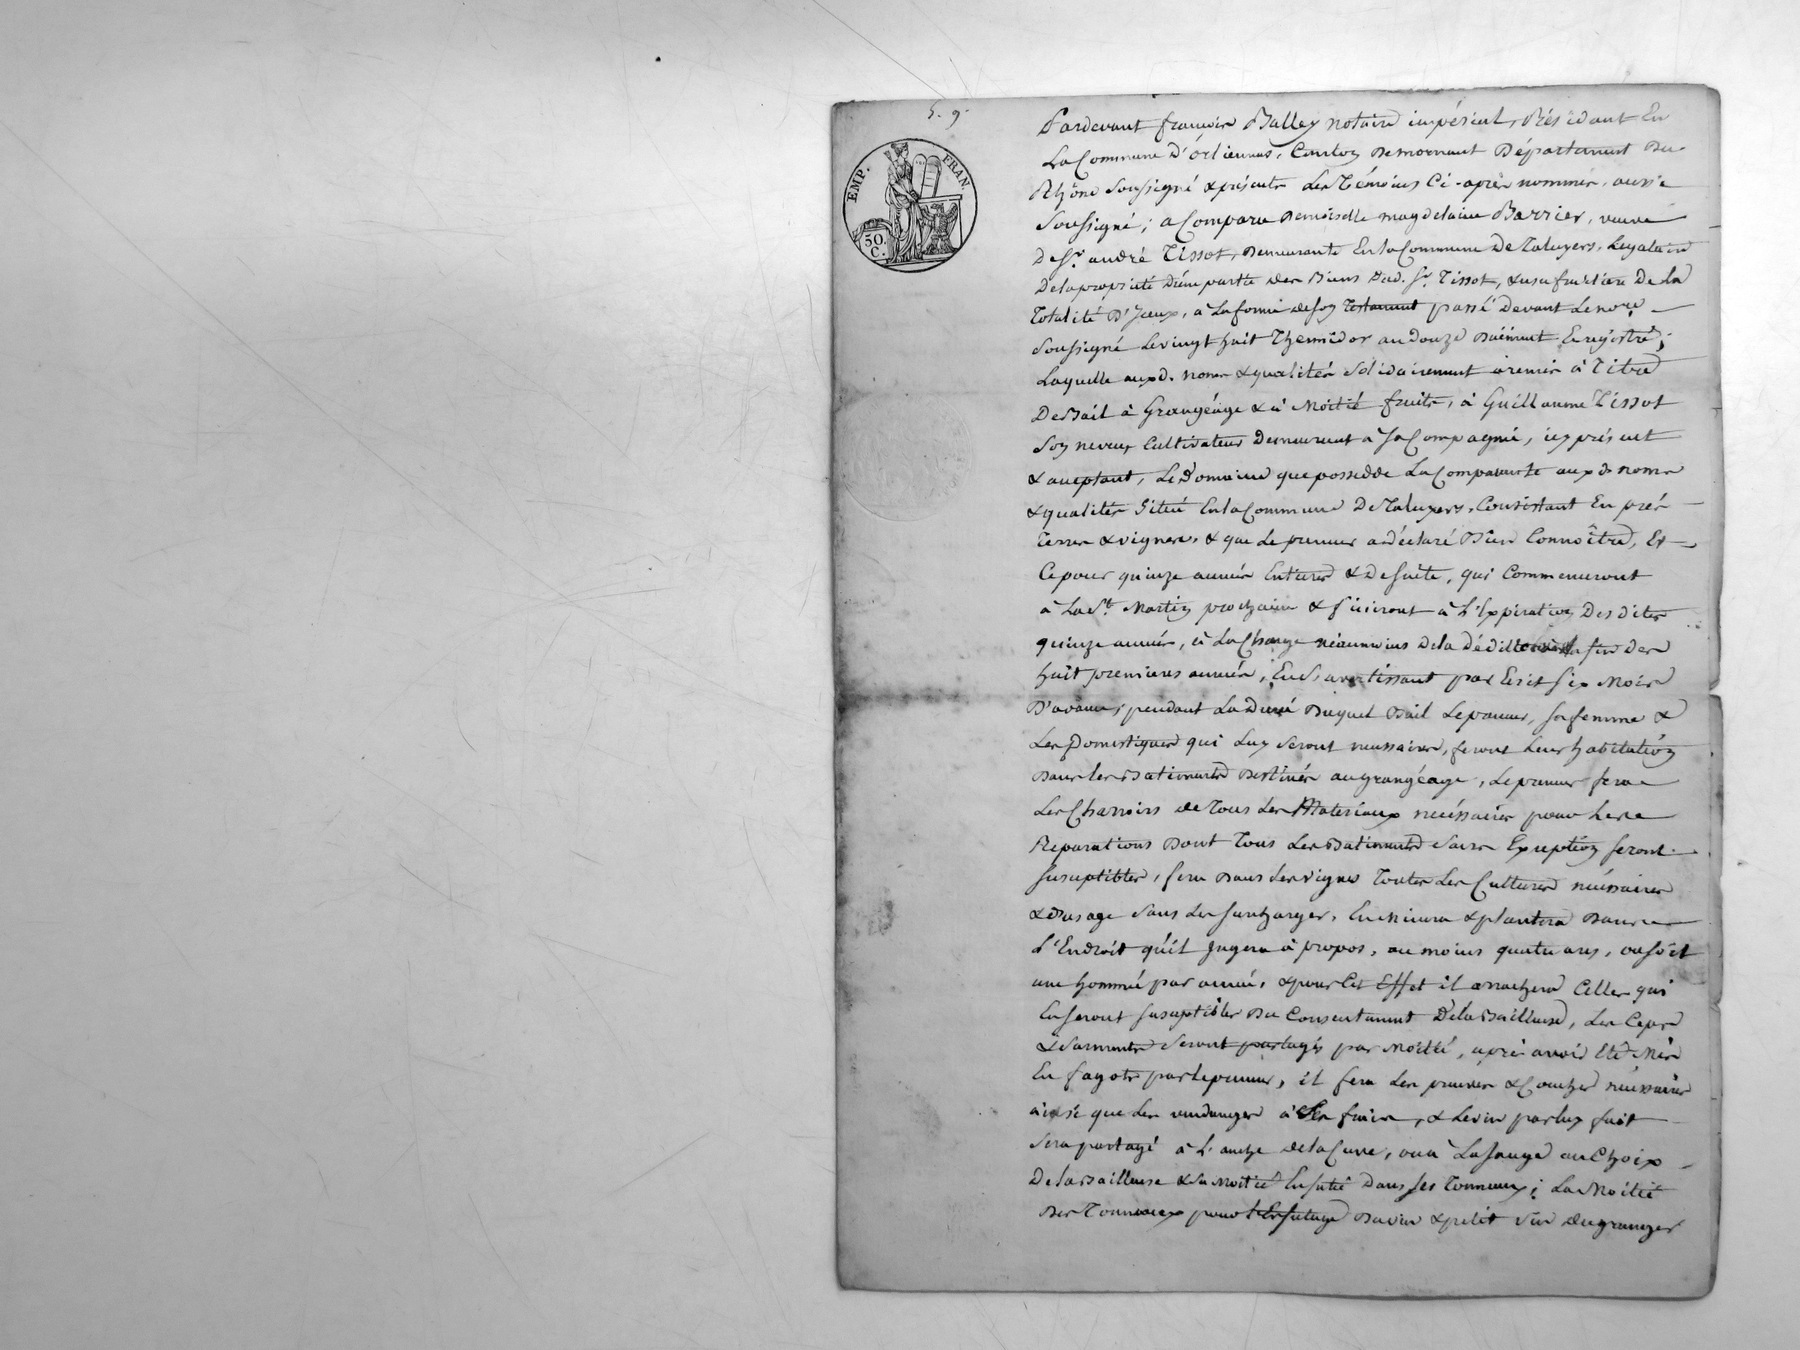 5. 9.
EMP. FRAN.
50. C.
Pardevant françois Balley notaire impérial, Résidant En
La Commune D'orliennas, Canton De mornant Departement Du
Rhône Soussigné & présents Les Témoins Ci-après nommés, aussi
Soussigné; a Comparu Demoiselle magdelaine Barrier, veuve
De Sr. andré Tissot, Demeurante En la Commune De Taluyers, Legataire
De la propriété D'une partie des Biens Dud. Sr. Tissot, & usufruitière De la
Totalité D'Iceux, à La forme de son Testament passé Devant Le nore.
Soussigné Le vingt huit Thermidor an douze Duement Enregistré;
Laquelle auxd. noms & qualités Solidairement a remis à Titre
De Bail à Grangéage & à Moitié fruits, à Guillaume Tissot
Son neveux Cultivateur Demeurant à Sa Compagnie, icy présent
& aceptant, Le Domaine que possedde La Comparante aux d. noms
& qualités Situé En la Commune De Taluyers, Consistant En prés
Terres & vignes, & que Le preneur a déclaré Bien Connoître, Et
Ce pour quinze années Entieres & De suite, qui Commenceront
à La St. Martin prochaine & finiront à L'Expiration Desdites
quinze années, à La Charge néanmoins De la Déditte la fin des
huit premieres années, En S'avertissant par Ecrit Six Mois
D'avance, pendant La Durée Duquel Bail Le preneur, Sa femme &
Les Domestiques qui Luy Seront nessaires, feront Leur habitation
Dans les Batiments Destinés au grangéage, Le preneur fera
Les Charrois de Tous Les Materiaux nécéssaires pour Les
Reparations Dont Tous Les Batiments Sans Exeption Seront
Suseptibles, fera Dans Les vignes Toutes Les Cultures nécéssaires
& D'usage Sans Les Surcharger, En & plantera Dans
L'Endroit qu'il Jugera à propos, au moins quatre ares, ou Soit
une hommée par année, & pour Cet Effet il arrachera Celles qui
En Seront Suseptibles Du Consentement De la Bailleuse, Les Ceps
& Sarments Seront partagés par Moitié, après avoir Eté Mis
En fagots par le preneur, il fera Les & nécéssaires
ainsi que Les vendanges à Ses fraix, & Le vin par luy fait
Sera partagé à L'anche de la Cuve, ou à La Jauge au Choix
De la Bailleuse & Sa Moitié Enfuté Dans Ses Tonneaux; La Moitié
Des Tonneaux pour L'Enfutage Du vin & petit vin du granger